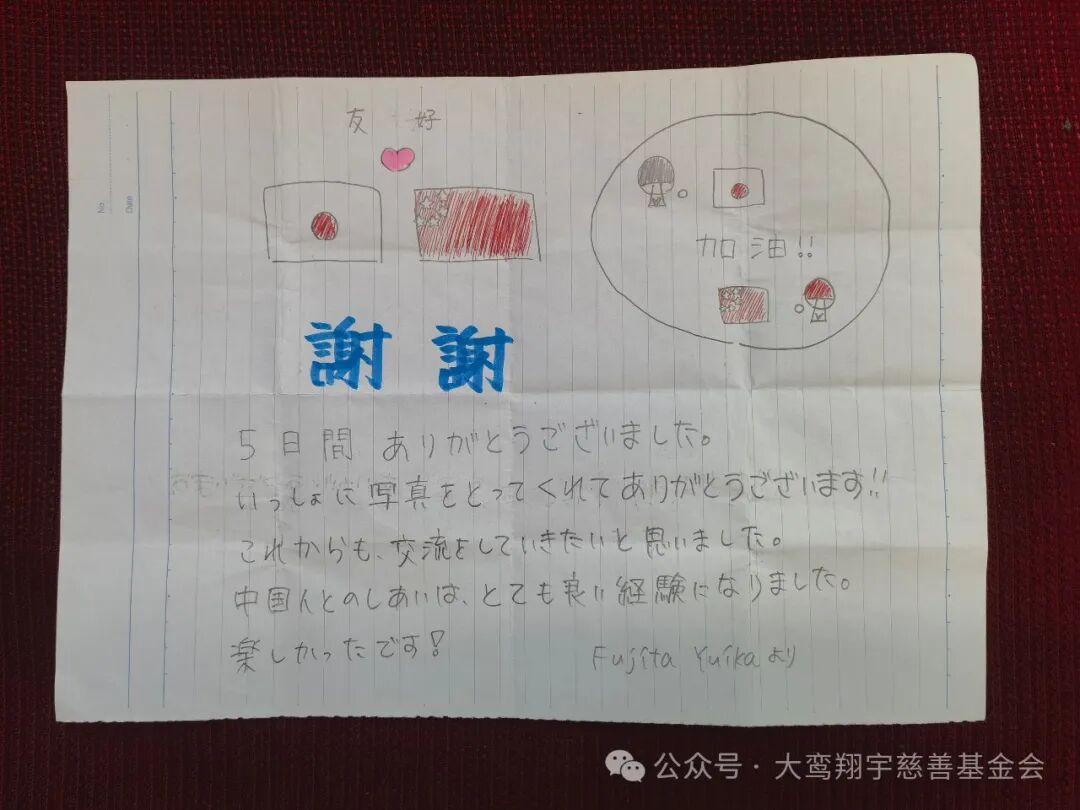 友 好
加油!!
謝 謝
5日間 ありがとうございました。
いっしょに写真をとってくれてありがとうございます!!
これからも、交流をしていきたいと思いました。
中国人とのしあいは、とても良い経験になりました。
楽しかったです!
Fujita Yuikaより
No.
Date
公众号·大鸾翔宇慈善基金会